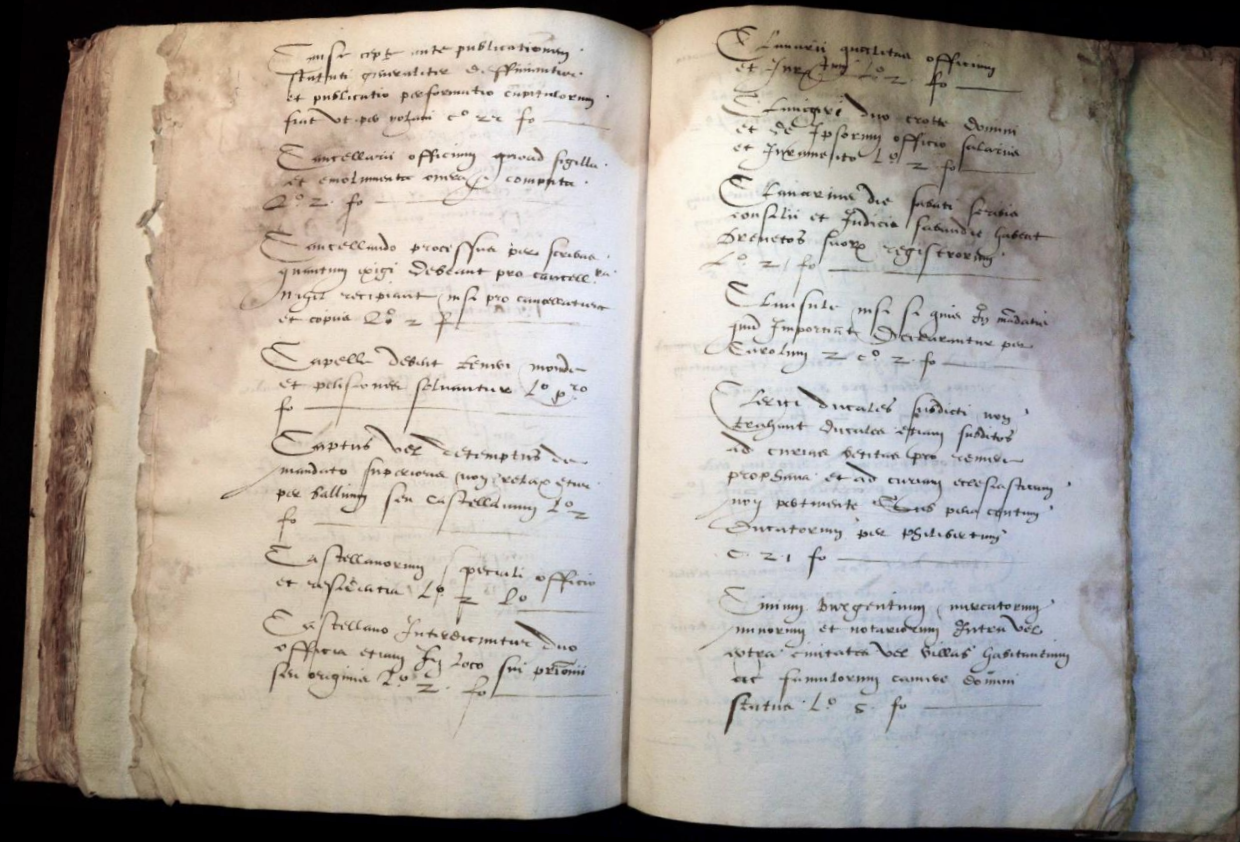 Cause cept ante publicationem
statuti generaliter deffiniantur
et publicatio performatio capitulorum
fiat ut per
Cancellarii officium quoad sigilla
et emolumenta computa
L° 2 fo
Cancellando processus per scribas
quantum exigi debeant pro cancell
Nichil recipiant nisi pro cancellatura
et copiis L° 2 f
Capelle debent teneri monde
et pensiones solvantur L° p°
fo
Captus vel detemptus de
mandato superioris non relaxetur
per ballivum seu Castellanum L° 2
fo
Castellanorum speciali officio
et residentia L° 2 fo
Castellano Interdicuntur duo
officia etiam In loco sui
seu originis L° 2 fo
Clavarii qualitas officium
et L° 2 fo
Clavigeri duo crotte domini
et de Ipsorum officio salariis
et Juramento L° 2 fo
Clavarius die sabati scribis
consilii et Judicis sabaudie habeat
brevetos suorum registrorum
L° 2 fo
Clausule nisi si quis In mandatis
quid Important Declarantur per
Carolum 2 c° 2 fo
Clerici ducales subdicti non
trahant ducales etiam subditos
ad curias vetitas pro rem
prophana et ad curiam ecclesiasticam
non pertinente pena centum
Ducatorum per Philibertum
C 21 fo
Civium burgensium mercatorum
minorum et notariorum Intra vel
extra civitates vel villas habitantium
ac famulorum domini
status L° 5 fo